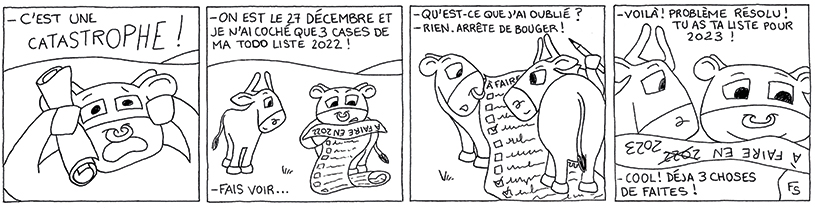 -C'EST UNE
CATASTROPHE !
-ON EST LE 27 DÉCEMBRE ET
JE N'AI COCHÉ QUE 3 CASES DE
MA TODO LISTE 2022 !
À FAIRE EN 2022
-FAIS VOIR...
-QU'EST-CE QUE J'AI OUBLIÉ ?
-RIEN. ARRÊTE DE BOUGER !
À FAIRE
-VOILÀ ! PROBLÈME RÉSOLU !
TU AS TA LISTE POUR
2023 !
À FAIRE EN 2022 2023
-COOL ! DÉJA 3 CHOSES
DE FAITES !
FS